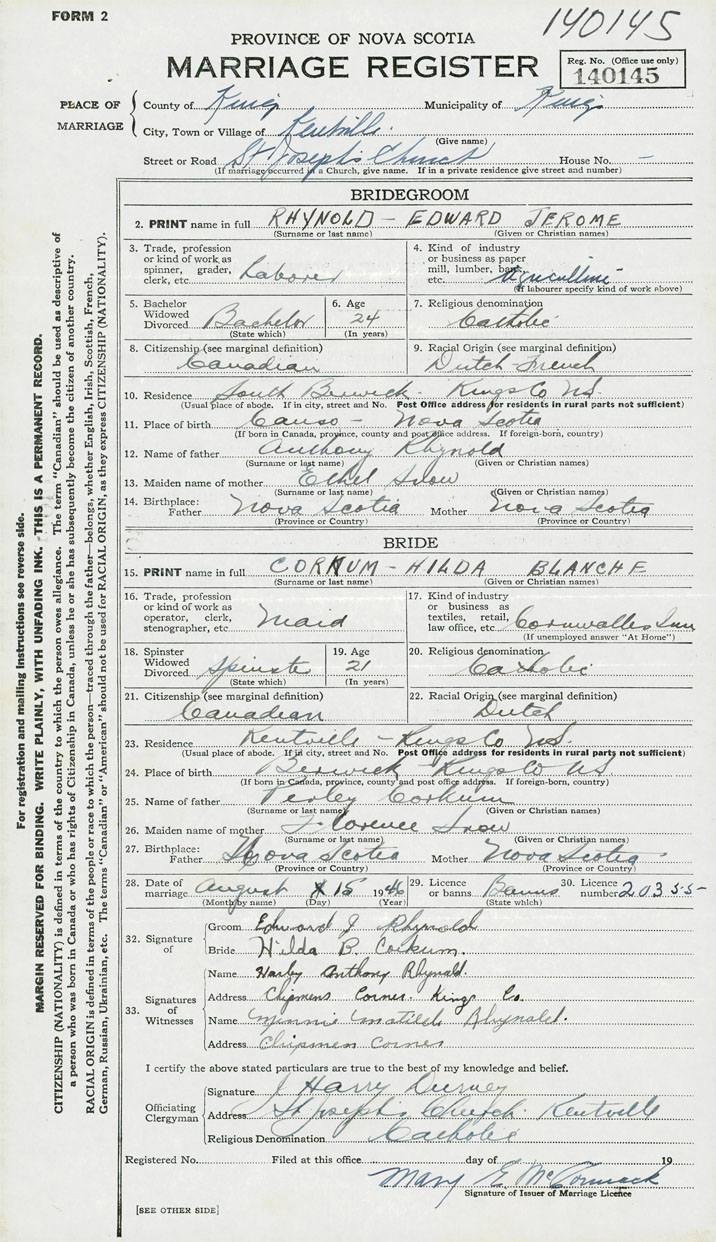 FORM 2
140145
PROVINCE OF NOVA SCOTIA
MARRIAGE REGISTER
Reg. No. (Office use only)
140145
PLACE OF MARRIAGE
County of Kings Municipality of Kings
City, Town or Village of Kentville.
(Give name)
Street or Road St Joseph's Church House No. –
(If marriage occurred in a Church, give name. If in a private residence give street and number)
BRIDEGROOM
2. PRINT name in full RHYNOLD – EDWARD JEROME
(Surname or last name) (Given or Christian names)
3. Trade, profession or kind of work as spinner, grader, clerk, etc. Laborer
4. Kind of industry or business as paper mill, lumber, bank, etc. Agriculture
(If labourer specify kind of work above)
5. Bachelor Widowed Divorced Bachelor
(State which)
6. Age 24
(In years)
7. Religious denomination Catholic
8. Citizenship (see marginal definition) Canadian
9. Racial Origin (see marginal definition) Dutch French
10. Residence South Berwick Kings Co NS
(Usual place of abode. If in city, street and No. Post Office address for residents in rural parts not sufficient)
11. Place of birth Canso – Nova Scotia
(If born in Canada, province, county and post office address. If foreign-born, country)
12. Name of father Anthony Rhynold
(Surname or last name) (Given or Christian names)
13. Maiden name of mother Ethel Snow
(Surname or last name) (Given or Christian names)
14. Birthplace: Father Nova Scotia Mother Nova Scotia
(Province or Country) (Province or Country)
BRIDE
15. PRINT name in full CORKUM – HILDA BLANCHE
(Surname or last name) (Given or Christian names)
16. Trade, profession or kind of work as operator, clerk, stenographer, etc. Maid
17. Kind of industry or business as textiles, retail, law office, etc. Cornwallis Inn
(If unemployed answer "At Home")
18. Spinster Widowed Divorced Spinster
(State which)
19. Age 21
(In years)
20. Religious denomination Catholic
21. Citizenship (see marginal definition) Canadian
22. Racial Origin (see marginal definition) Dutch
23. Residence Kentville – Kings Co NS.
(Usual place of abode. If in city, street and No. Post Office address for residents in rural parts not sufficient)
24. Place of birth Berwick Kings Co NS.
(If born in Canada, province, county and post office address. If foreign-born, country)
25. Name of father Perley Corkum
(Surname or last name) (Given or Christian names)
26. Maiden name of mother Florence Snow
(Surname or last name) (Given or Christian names)
27. Birthplace: Father Nova Scotia Mother Nova Scotia
(Province or Country) (Province or Country)
28. Date of marriage August 15 1946
(Month by name) (Day) (Year)
29. Licence or banns Banns
(State which)
30. Licence number 20355
32. Signature of
Groom Edward J Rhynold
Bride Hilda B. Corkum.
33. Signatures of Witnesses
Name Harley Anthony Rhynold.
Address Chipmens Corner. Kings Co.
Name Minnie Matilda Rhynold.
Address Chipmen Corner
I certify the above stated particulars are true to the best of my knowledge and belief.
Officiating Clergyman
Signature J Harry Durney
Address St Joseph's Church. Kentville
Religious Denomination Catholic
Registered No. Filed at this office day of 19
Mary E. McCormack
Signature of Issuer of Marriage Licence
[SEE OTHER SIDE]
For registration and mailing instructions see reverse side.
MARGIN RESERVED FOR BINDING. WRITE PLAINLY, WITH UNFADING INK. THIS IS A PERMANENT RECORD.
CITIZENSHIP (NATIONALITY) is defined in terms of the country to which the person owes allegiance. The term "Canadian" should be used as descriptive of
a person who was born in Canada or who has rights of Citizenship in Canada, unless he or she has subsequently become the citizen of another country.
RACIAL ORIGIN is defined in terms of the people or race to which the person—traced through the father—belongs, whether English, Irish, Scottish, French,
German, Russian, Ukrainian, etc. The terms "Canadian" or "American" should not be used for RACIAL ORIGIN, as they express CITIZENSHIP (NATIONALITY).